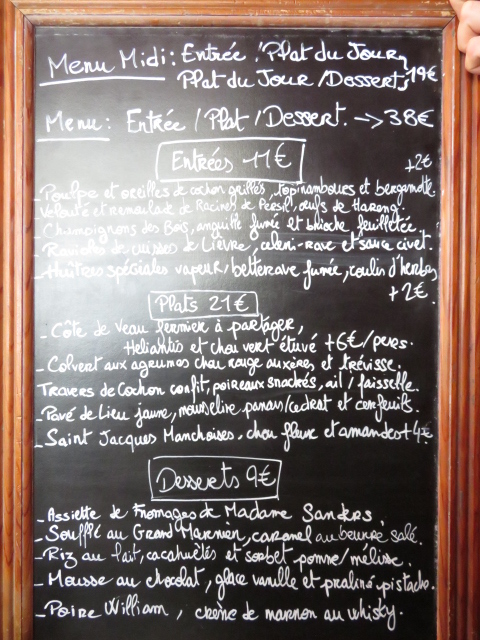 Menu Midi: Entrée / Plat du Jour,
Plat du Jour / Dessert, 19€
Menu: Entrée / Plat / Dessert. → 38€
Entrées 11€
+2€
- Poulpe et oreilles de cochon grillés, topinambours et bergamotte.
Velouté et remoulade de Racines de Persil, œufs de Hareng.
- Champignons des Bois, anguille fumée et brioche feuilletée.
- Ravioles de cuisses de Lièvre, céleri-rave et sauce civet.
- Huîtres spéciales vapeur, betterave fumée, coulis d'herbes
+2€
Plats 21€
- Côte de Veau fermier à partager,
Heliantis et chou vert étuvé +6€/pers.
- Colvert aux agrumes chou rouge aux et trévisse.
Travers de Cochon confit, poireaux snackés, ail / faisselle.
- Pavé de Lieu jaune, mousseline panais/cedrat et cerfeuils.
- Saint Jacques Manchoises, chou fleur et amandes +4€
Desserts 9€
- Assiette de Fromages de Madame Sanders.
- Soufflé au Grand Marnier, caramel au beurre salé.
- Riz au lait, cacahuètes et sorbet pomme/mélisse.
- Mousse au chocolat, glace vanille et praliné pistache.
- Poire William, crème de marron au whisky.